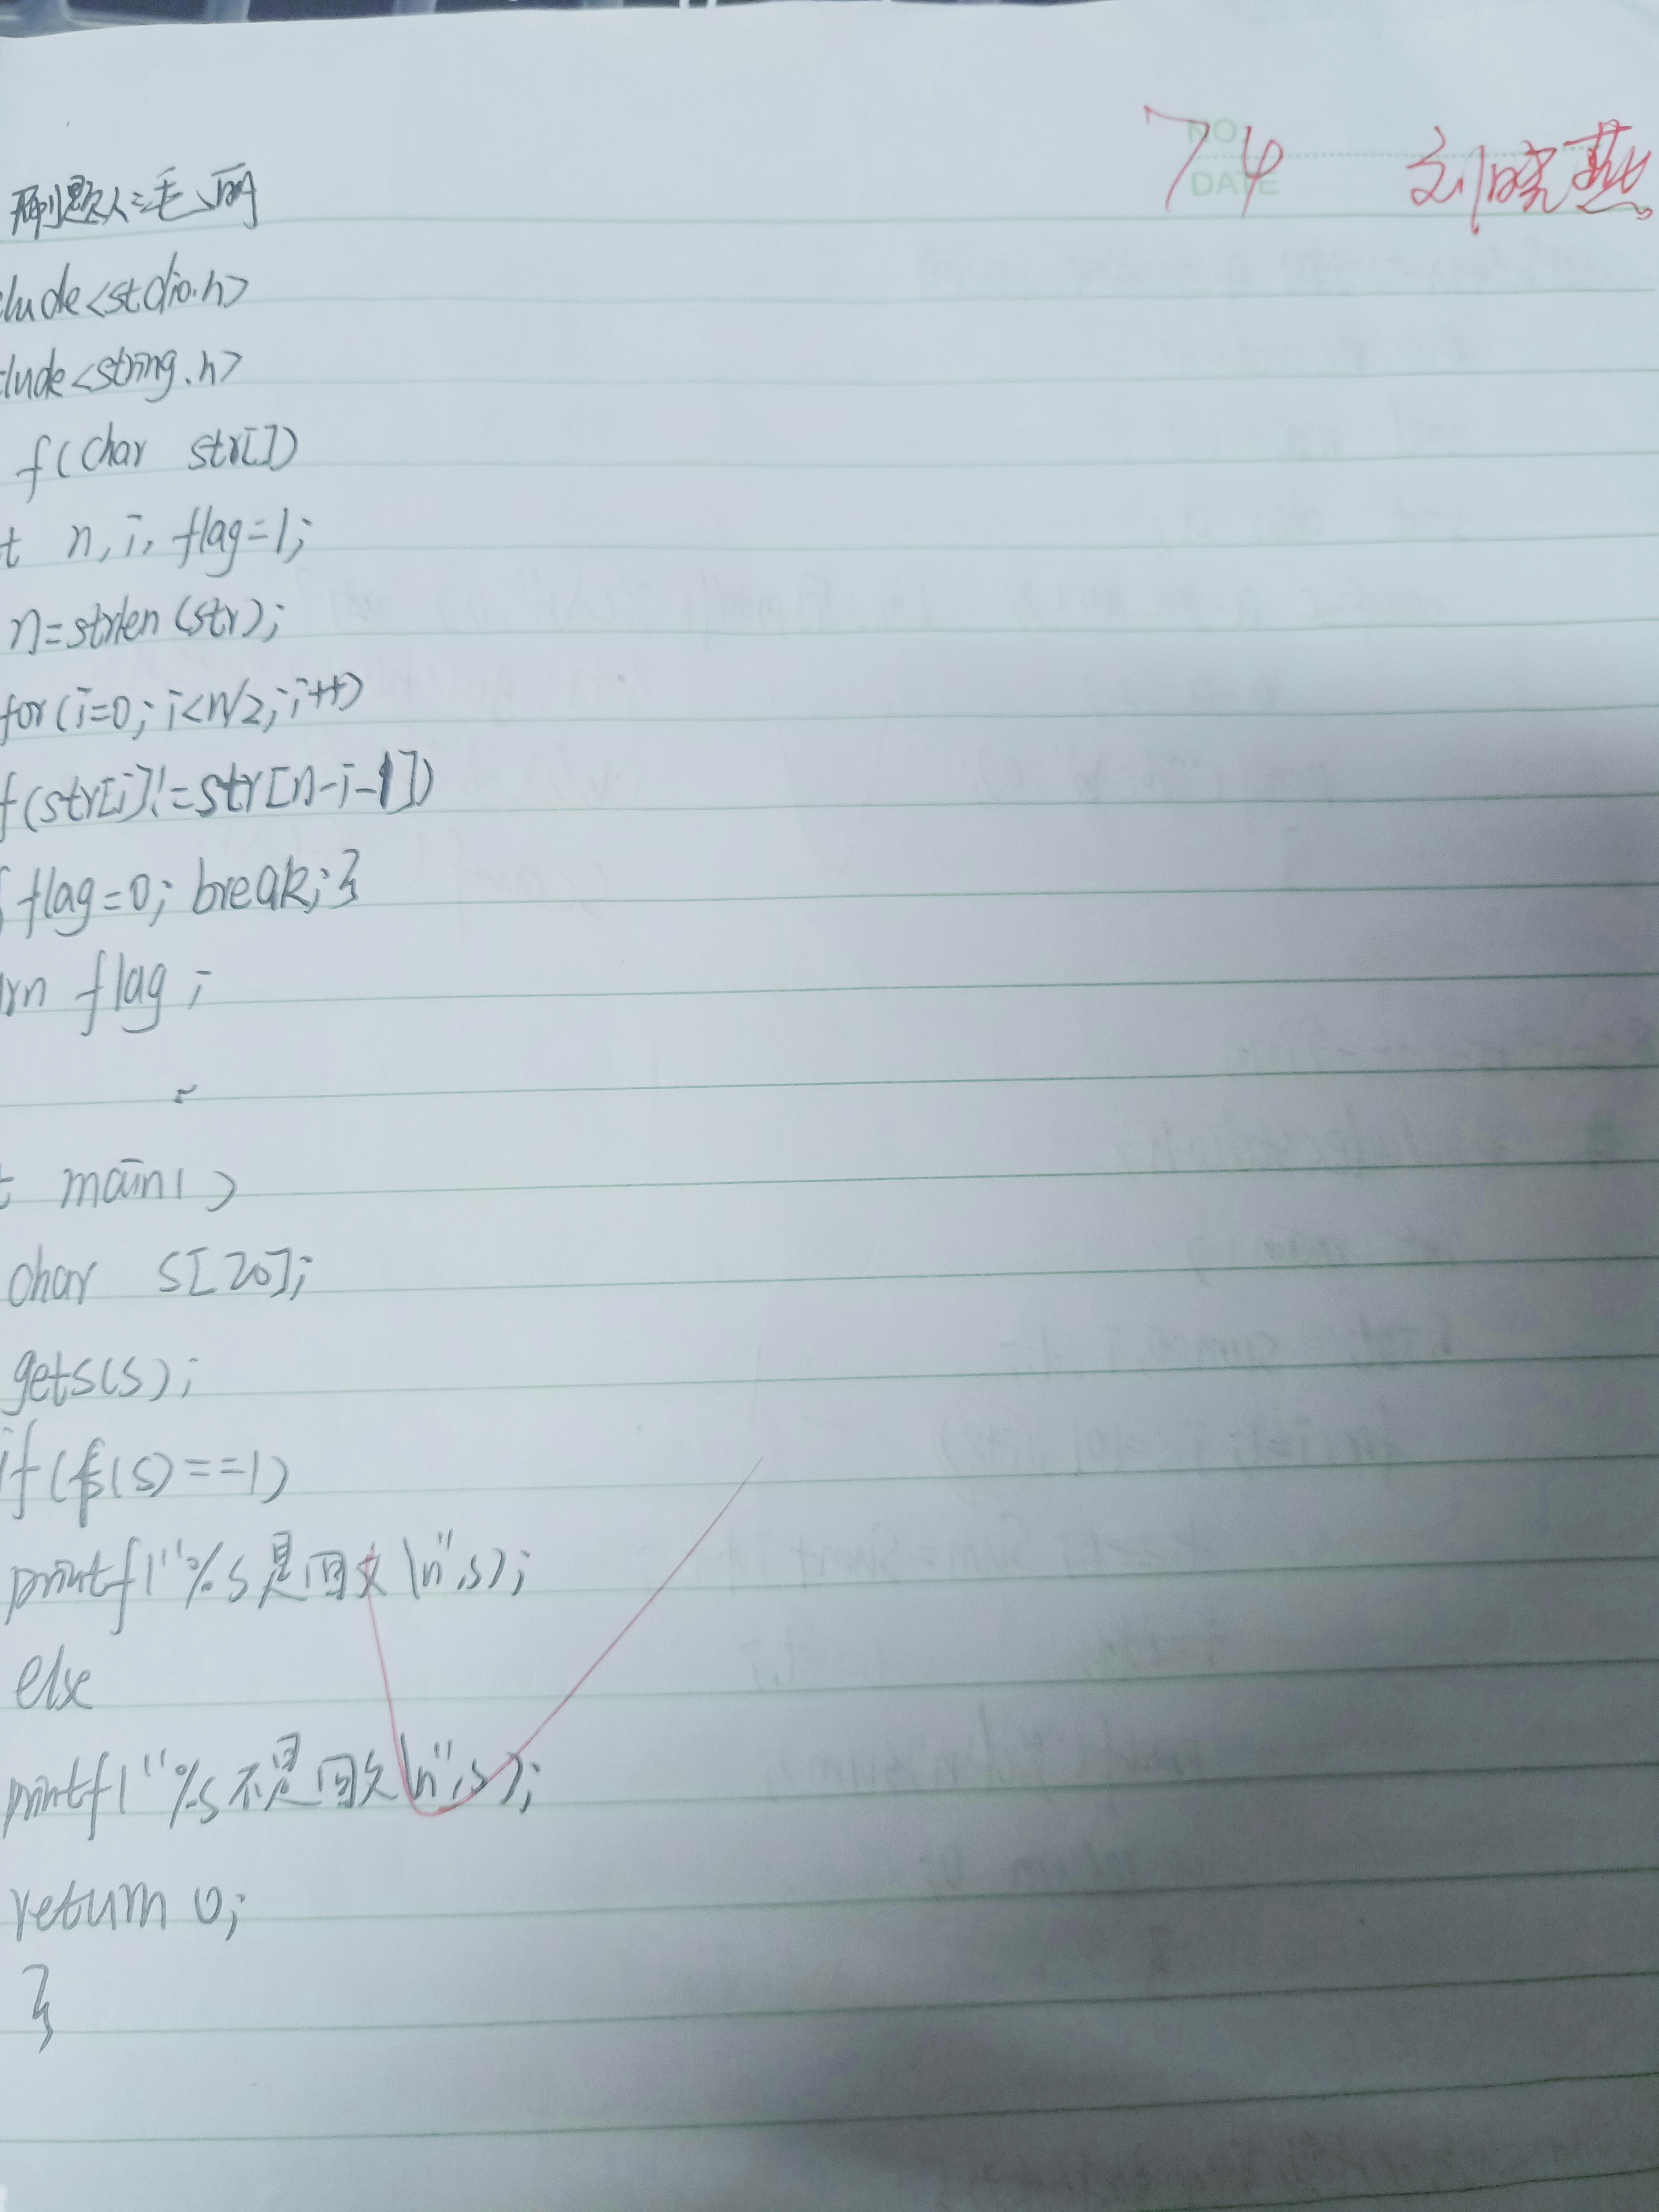 NO.
DATE
74 刘晓燕
刷题人:毛丽
lude<stdio.h>
clude<string.h>
f(char str[])
t n,i, flag=1;
n=strlen(str);
for(i=0;i<n/2;i++)
f(str[i]!=str[n-i-1])
{flag=0; break;}
rn flag;
t main()
char s[20];
gets(s);
if(f(s)==1)
printf("%s是回文\n",s);
else
printf("%s不是回文\n",s);
return 0;
}